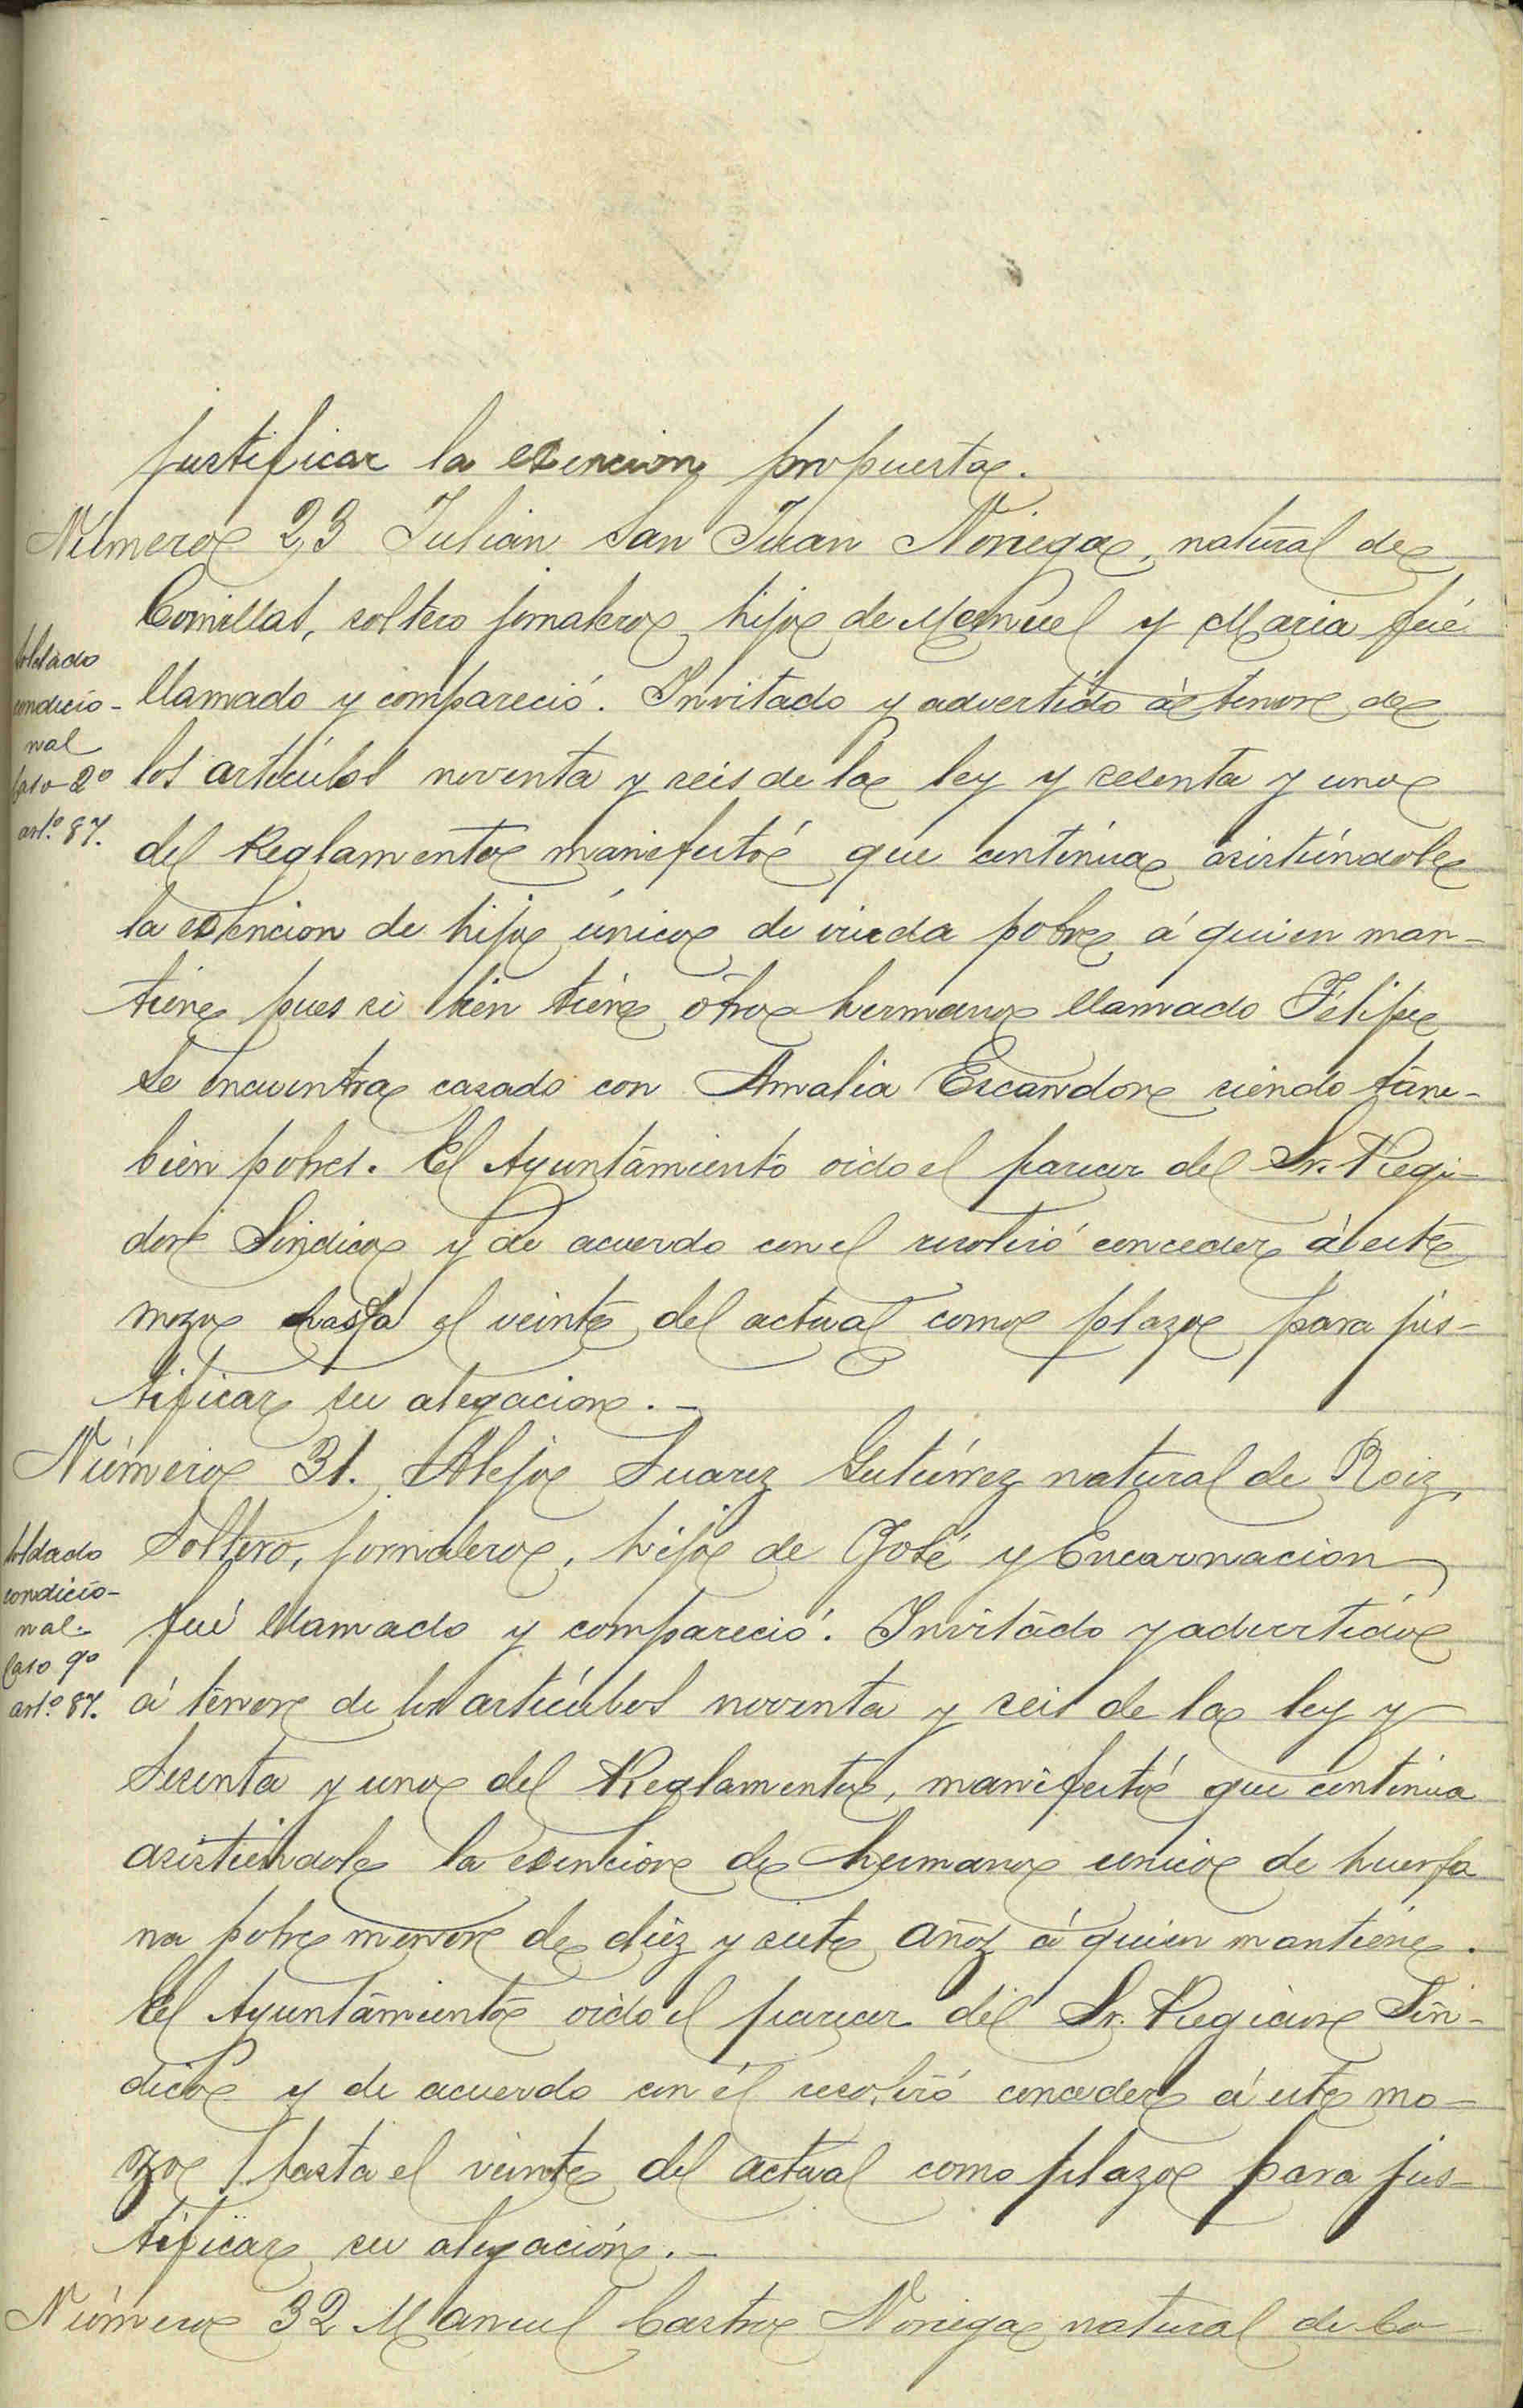 justificar la exencion propuesta.
Número 23 Julian San Juan Noriega, natural de
Comillas, soltero jornalero, hijo de Manuel y Maria fué
llamado y compareció. Invitado y advertido á tenor de
los artículos noventa y seis de la ley y sesenta y uno
del Reglamento manifestó que continúa asistiéndole
la exencion de hijo único de viuda pobre á quien man-
tiene pues si bien tiene otro hermano llamado Felipe
se encuentra casado con Amalia Escandon siendo tam-
bien pobres. El Ayuntamiento oido el parecer del Sr. Regi-
dor Sindico y de acuerdo con el resolvió conceder á este
mozo hasta el veinte del actual como plazo para jus-
tificar su alegacion.-
Soldado
condicio-
nal
Caso 2º
artº. 87.
Número 31. Alejo Suarez Gutiérrez natural de Roiz,
Soltero, jornalero, hijo de José y Encarnacion
fué llamado y compareció. Invitado y advertido
á tenor de los artículos noventa y seis de la ley y
Sesenta y uno del Reglamento, manifestó que continua
asistiéndole la exencion de hermano unico de huerfa
na pobre menor de diez y siete años á quien mantiene.
El Ayuntamiento oido el parecer del Sr. Regidor Sin-
dico y de acuerdo con él resolvió conceder á este mo-
zo hasta el veinte del actual como plazo para jus-
tificar su alegación.-
Soldado
condicio-
nal.
Caso 9º
artº. 87.
Número 32 Manuel Castro Noriega natural de Co-